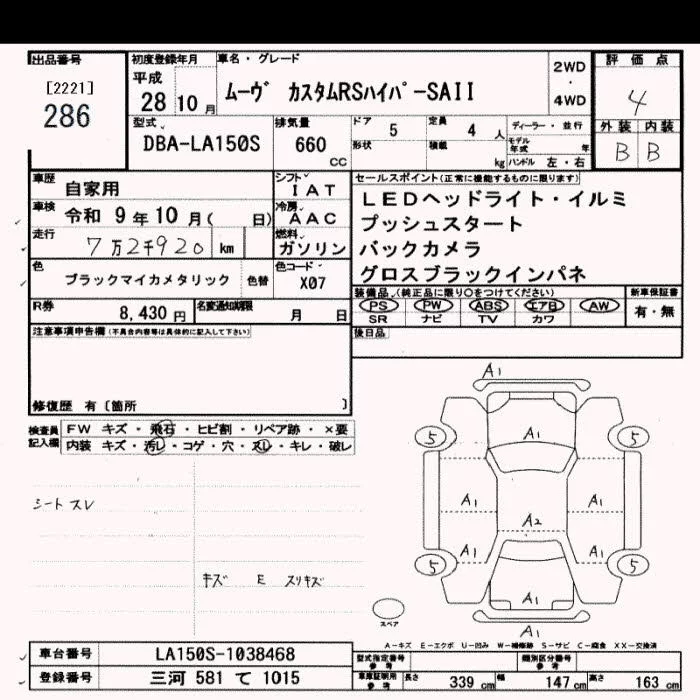 出品番号
[2221]
286
初度登録年月
平成
28年10月
車名・グレード
ムーヴ カスタムRSハイパーSAII
2WD
・
4WD
評価点
4
外装 内装
B B
型式
DBA-LA150S
排気量
660 CC
ドア 5
形状
定員 4 人
積載 kg
ディーラー・並行
モデル年式 年
ハンドル 左・右
車歴 自家用
シフト IAT
車検 令和 9年10月( 日)
冷房 AAC
走行 7万2千920 km
燃料 ガソリン
色 ブラックマイカメタリック 色替
色コード X07
R券 8,430 円
名変通知期限 月 日
セールスポイント(正常に機能するものに限ります)
LEDヘッドライト・イルミ
プッシュスタート
バックカメラ
グロスブラックインパネ
装備品(純正品に限り○をつけてください)
新車保証書
PS PW ABS エアB AW
SR ナビ TV カワ
有・無
後日品
注意事項申告欄(不具合内容等は具体的に記入して下さい)
修復歴 有〔箇所 〕
検査員記入欄
FW キズ・飛石・ヒビ割・リペア跡・×要
内装 キズ・汚し・コゲ・穴・スレ・キレ・破レ
シート スレ
キズ E スリキズ
A1
5 5
A1
A1 A1
A2
A1 A1
5 5
A1
A1
スペア
A-キズ E-エクボ U-凹み W-補修跡 S-サビ C-腐食 XX-交換済
車台番号 LA150S-1038468
登録番号 三河 581 て 1015
型式指定番号 参考
類別区分番号 参考
車庫証明用 参考 長さ 339 cm 幅 147 cm 高さ 163 cm